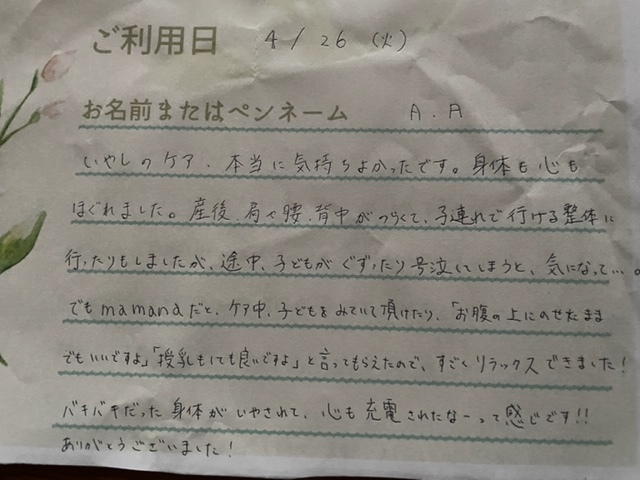 ご利用日 4/26 (火)
お名前またはペンネーム A.A
いやしのケア、本当に気持ちよかったです。身体も心も
ほぐれました。産後、肩や腰、背中がつらくて、子連れで行ける整体に
行ったりもしましたが、途中、子どもがぐずったり号泣してしまうと、気になって…。
でもmamanaだと、ケア中、子どもをみていて頂けたり、「お腹の上にのせたまま
でもいいですよ」「授乳もしても良いですよ」と言ってもらえたので、すごくリラックスできました!
バキバキだった身体がいやされて、心も充電されたなーって感じです!!
ありがとうございました!